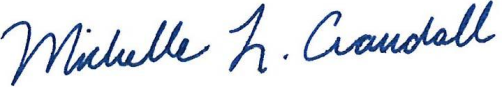 Michelle L. Crandall